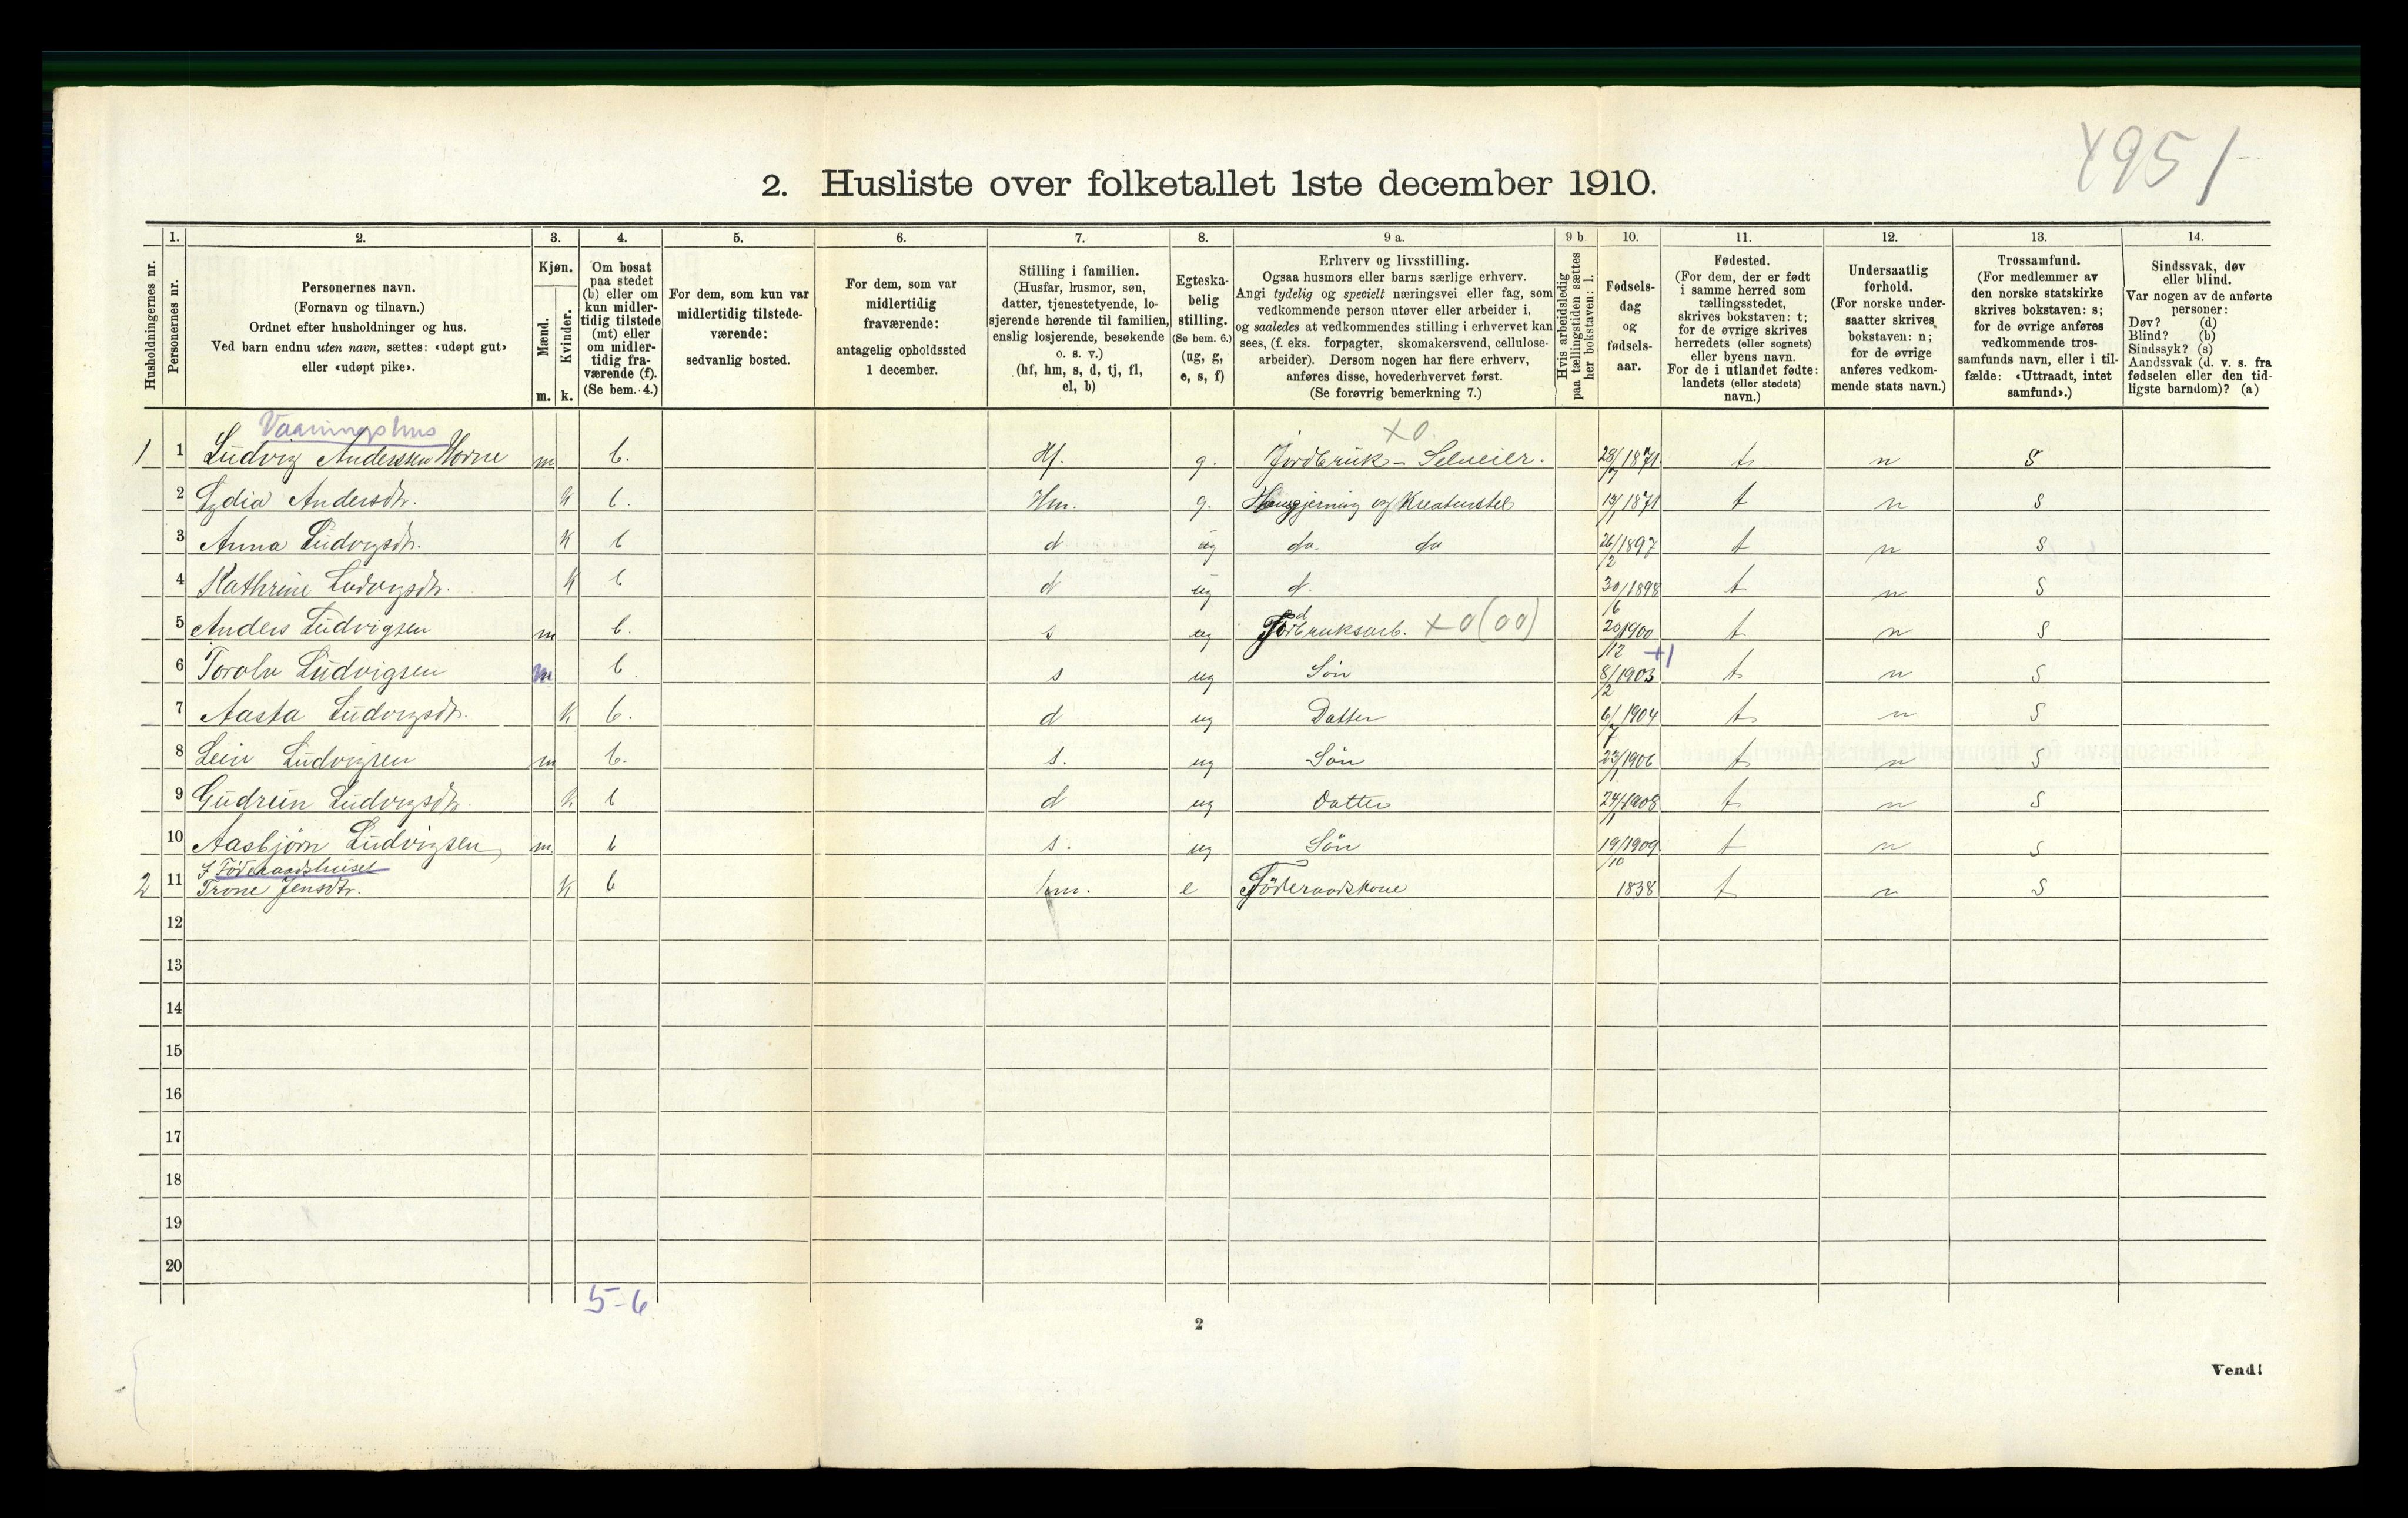 4951
2. Husliste over folketallet 1ste december 1910.
Husholdningernes nr.
1.
Personernes nr.
2.
Personernes navn.
(Fornavn og tilnavn.)
Ordnet efter husholdninger og hus.
Ved barn endnu uten navn, sættes: «udøpt gut»
eller «udøpt pike».
3.
Kjøn.
Mænd.
Kvinder.
m. k.
4.
Om bosat
paa stedet
(b) eller om
kun midler-
tidig tilstede
(mt) eller
om midler-
tidig fra-
værende (f).
(Se bem. 4.)
5.
For dem, som kun var
midlertidig tilstede-
værende:
sedvanlig bosted.
6.
For dem, som var
midlertidig
fraværende:
antagelig opholdssted
1 december.
7.
Stilling i familien.
(Husfar, husmor, søn,
datter, tjenestetyende, lo-
sjerende hørende til familien,
enslig losjerende, besøkende
o. s. v.)
(hf, hm, s, d, tj, fl,
el, b)
8.
Egteska-
belig
stilling.
(Se bem. 6.)
(ug, g,
e, s, f)
9 a.
Erhverv og livsstilling.
Ogsaa husmors eller barns særlige erhverv.
Angi tydelig og specielt næringsvei eller fag, som
vedkommende person utøver eller arbeider i,
og saaledes at vedkommendes stilling i erhvervet kan
sees, (f. eks. forpagter, skomakersvend, cellulose-
arbeider). Dersom nogen har flere erhverv,
anføres disse, hovederhvervet først.
(Se forøvrig bemerkning 7.)
9 b.
Hvis arbeidsledig
paa tællingstiden sættes
her bokstaven: l.
10.
Fødsels-
dag
og
fødsels-
aar.
11.
Fødested.
(For dem, der er født
i samme herred som
tællingsstedet,
skrives bokstaven: t;
for de øvrige skrives
herredets (eller sognets)
eller byens navn.
For de i utlandet fødte:
landets (eller stedets)
navn.)
12.
Undersaatlig
forhold.
(For norske under-
saatter skrives
bokstaven: n;
for de øvrige
anføres vedkom-
mende stats navn.)
13.
Trossamfund.
(For medlemmer av
den norske statskirke
skrives bokstaven: s;
for de øvrige anføres
vedkommende tros-
samfunds navn, eller i til-
fælde: «Uttraadt, intet
samfund».)
14.
Sindssvak, døv
eller blind.
Var nogen av de anførte
personer:
Døv? (d)
Blind? (b)
Sindssyk? (s)
Aandssvak (d. v. s. fra
fødselen eller den tid-
ligste barndom)? (a)
Vaaningshus x 0.
1 1 Ludvig Anderssen Horne m b. Hf. g. Jordbruk - Selveier. 28/7 1871 t n s
2 Lydia Andersdtr. k b. Hm. g. Husgjerning og Kreaturstel 1871 t n s
3 Anna Ludvigsdtr. k b d ug do. do 26/2 1897 t n s
4 Kathrine Ludvigsdtr. k b d ug d. 30/6 1898 t n s
5 Anders Ludvigsen m b. s ug Jordbruksarb. x 0 (00) 20/12 1900 t n s
6 Toralv Ludvigsen m b. s ug Søn 8/2 1903 +1 t n s
7 Aasta Ludvigsdtr. k b. d ug Datter 6/7 1904 t n s
8 Ludvigsen m b. s. ug Søn 23/1 1906 t n s
9 Gudrun Ludvigsdtr. k b d ug Datter 24/1 1908 t n s
10 Aasbjørn Ludvigsen m b s. ug Søn 19/10 1909 t n s
I Føderaadshuset
2 11 Trone Jensdtr. k b hm. e Föderaadskone 1838 t n s
12
13
14
15
16
17
18
19
20
5-6
2
Vend!